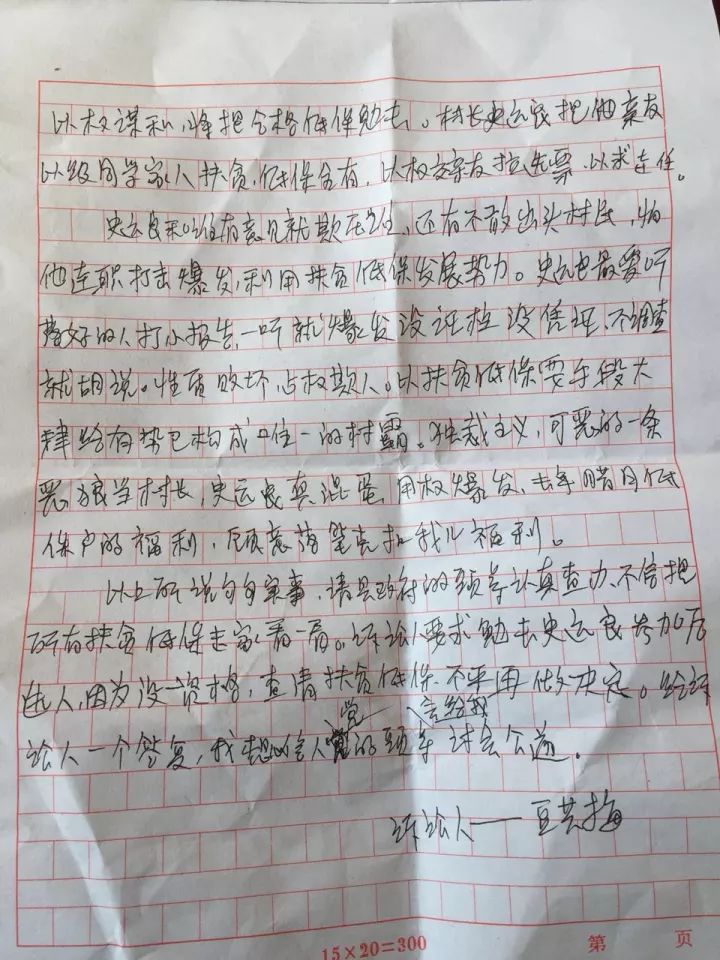 以权谋利,将把合格低保勉去。村长史运良把他亲友
以级同学家人扶贫,低保含有,以权交亲友拉选票,以求连任。
史运良和谁有意见就欺压谁,还有不敢出头村民,怕
他连职打击爆发,利用扶贫低保发展势力。史运良最爱听
好的人打小报告,一听就爆发没证检没凭证,不调查
就胡说。性质败坏,占权欺人。以扶贫低保耍手段大
肆给有势已构成唯一的村霸。独裁主义,可恶的一条
恶狼当村长,史运良真混蛋,用权爆发,去年腊月低
保户的福利,故意落笔克扣我儿福利。
以上所说句句实事,请县政府的领导认真查办,不信把
所有扶贫低保走家看一看。诉讼人要求勉去史运良参加后
选人,因为没资格,查清扶贫低保,不平再做决定。给诉
讼人一个答复,我相信人党的领导讨会公道。
党 言给我
诉讼人——豆芸梅
15×20=300
第 页